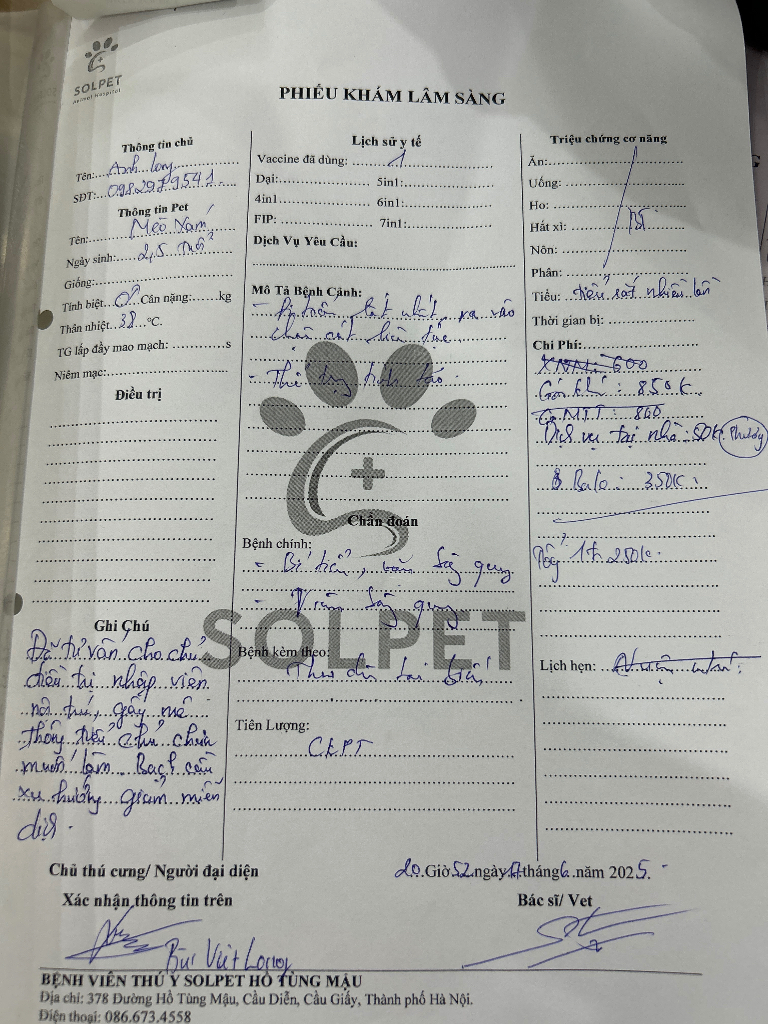 SOLPET
Animal Hospital
PHIẾU KHÁM LÂM SÀNG
Thông tin chủ
Tên: Anh Long
SĐT: 0982979541
Thông tin Pet
Tên: Mèo Xám
Ngày sinh: 2,5 tuổi
Giống:
Tính biệt ♂ Cân nặng: kg
Thân nhiệt 38 °C.
TG lấp đầy mao mạch: s
Niêm mạc:
Điều trị
Ghi Chú
Đã tư vấn cho chủ
điều trị nhập viện
nội trú, gây mê
thông tiểu chủ chưa
muốn làm. Bạch cầu
xu hướng giảm miễn
dịch.
Lịch sử y tế
Vaccine đã dùng: 1
Dại: 5in1:
4in1 6in1:
FIP: 7in1:
Dịch Vụ Yêu Cầu:
Mô Tả Bệnh Cảnh:
- Đi tiểu lắt nhắt, ra vào
chậu cát liên tục
- Thể trạng tỉnh táo
Chẩn đoán
Bệnh chính:
- Bí tiểu, bàng quang
- Viêm bàng quang
Bệnh kèm theo:
Theo dõi tai biến
Tiên Lượng:
CEPT
SOLPET
Triệu chứng cơ năng
Ăn:
Uống:
Ho:
Hắt xì: BT
Nôn:
Phân:
Tiểu: tiểu rắt nhiều lần
Thời gian bị:
Chi Phí:
XNM: 600
Gói khí: 850K.
GMTT: 800
Dịch vụ tại nhà: 50K. Phương
Balo: 350K.
1th 250K.
Lịch hẹn:
20 Giờ 52 ngày 17 tháng 6 năm 2025.
Chủ thú cưng/ Người đại diện
Xác nhận thông tin trên
Bác sĩ/ Vet
Bùi Việt Long
BỆNH VIỆN THÚ Y SOLPET HỒ TÙNG MẬU
Địa chỉ: 378 Đường Hồ Tùng Mậu, Cầu Diễn, Cầu Giấy, Thành phố Hà Nội.
Điện thoại: 086.673.4558